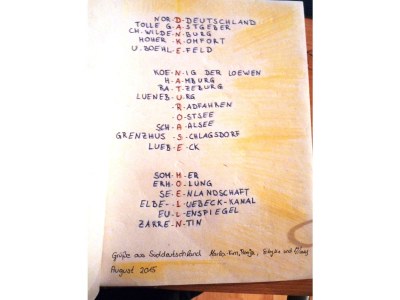 NOR-D-DEUTSCHLAND
TOLLE G-A-STGEBER
CH. WILDE-N-BURG
HOHER K-O-MFORT
U. BOEHL-E-FELD
KOE-N-IG DER LOEWEN
H-A-MBURG
RA-T-ZEBURG
LUENEB-U-RG
R-ADFAHREN
O-STSEE
SCH-A-ALSEE
GRENZHUS-S-CHLAGSDORF
LUEB-E-CK
SOM-M-ER
ERH-O-LUNG
SE-E-NLANDSCHAFT
ELBE-L-UEBECK-KANAL
EU-L-ENSPIEGEL
ZARRE-N-TIN
Grüße aus Süddeutschland und
August 2015